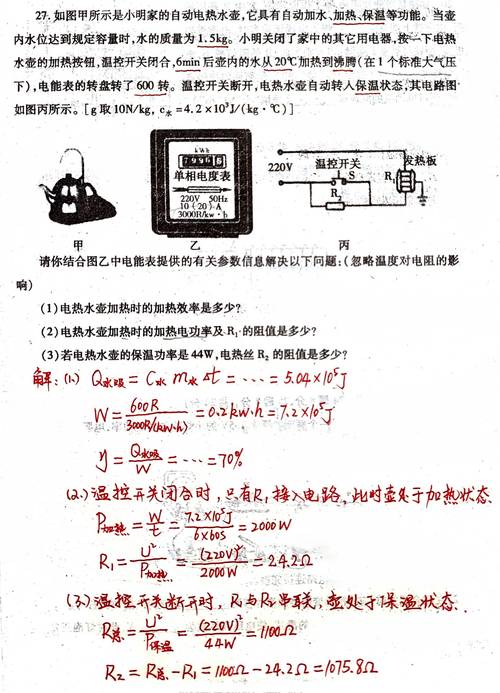 27. 如图甲所示是小明家的自动电热水壶,它具有自动加水、加热、保温等功能。当壶
内水位达到规定容量时,水的质量为1.5kg。小明关闭了家中的其它用电器,按一下电热
水壶的加热按钮,温控开关闭合,6min后壶内的水从20℃加热到沸腾(在1个标准大气压
下),电能表的转盘转了600转。温控开关断开,电热水壶自动转入保温状态,其电路图
如图丙所示。[g取10N/kg, c水=4.2×10³J/(kg·℃)]
kWh
单相电度表
220V 50Hz
10(20)A
3000R/kw·h
220V
温控开关
S
R₂
R₁
发热板
甲
乙
丙
请你结合图乙中电能表提供的有关参数信息解决以下问题:(忽略温度对电阻的影
响)
(1)电热水壶加热时的加热效率是多少?
(2)电热水壶加热时的加热电功率及R₁的阻值是多少?
(3)若电热水壶的保温功率是44W,电热丝R₂的阻值是多少?
解:(1) Q水吸=C水 m水 Δt=……=5.04×10⁵J
W=600R/3000R/(kw·h)=0.2kw·h=7.2×10⁵J
η=Q水吸/W=……=70%
(2)温控开关闭合时,只有R₁接入电路,此时壶处于加热状态
P加热=W/t=7.2×10⁵J/6×60s=2000W
R₁=U²/P加热=(220V)²/2000W=24.2Ω
(3)温控开关断开时,R₁与R₂串联,壶处于保温状态.
R总=U²/P保温=(220V)²/44W=1100Ω
R₂=R总-R₁=1100Ω-24.2Ω=1075.8Ω